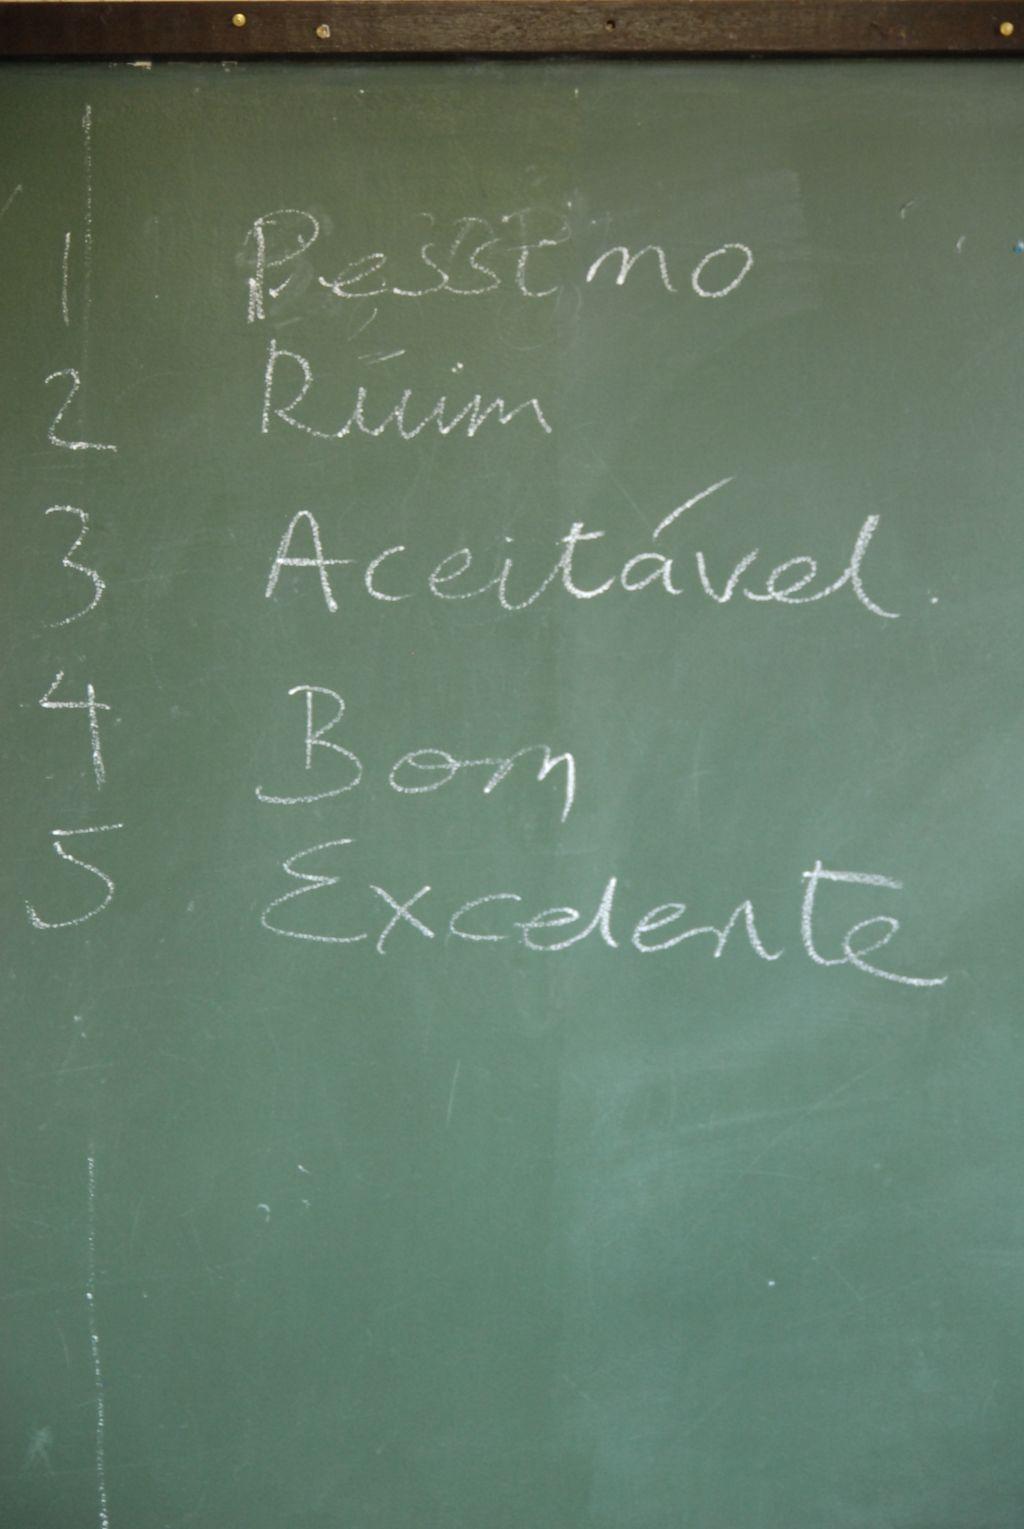 1 Pessimo
2 Rúim
3 Aceitável.
4 Bom
5 Excelente